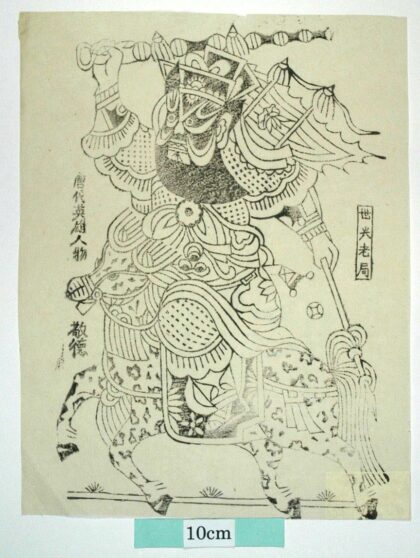 唐代英雄人物
敬德
世兴老局
10cm